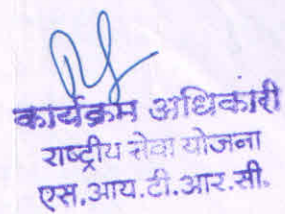 कार्यक्रम अधिकारी
राष्ट्रीय सेवा योजना
एस.आय.टी.आर.सी.